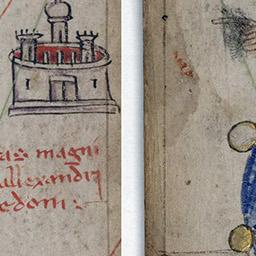 as magni
allexandrj
edoni: